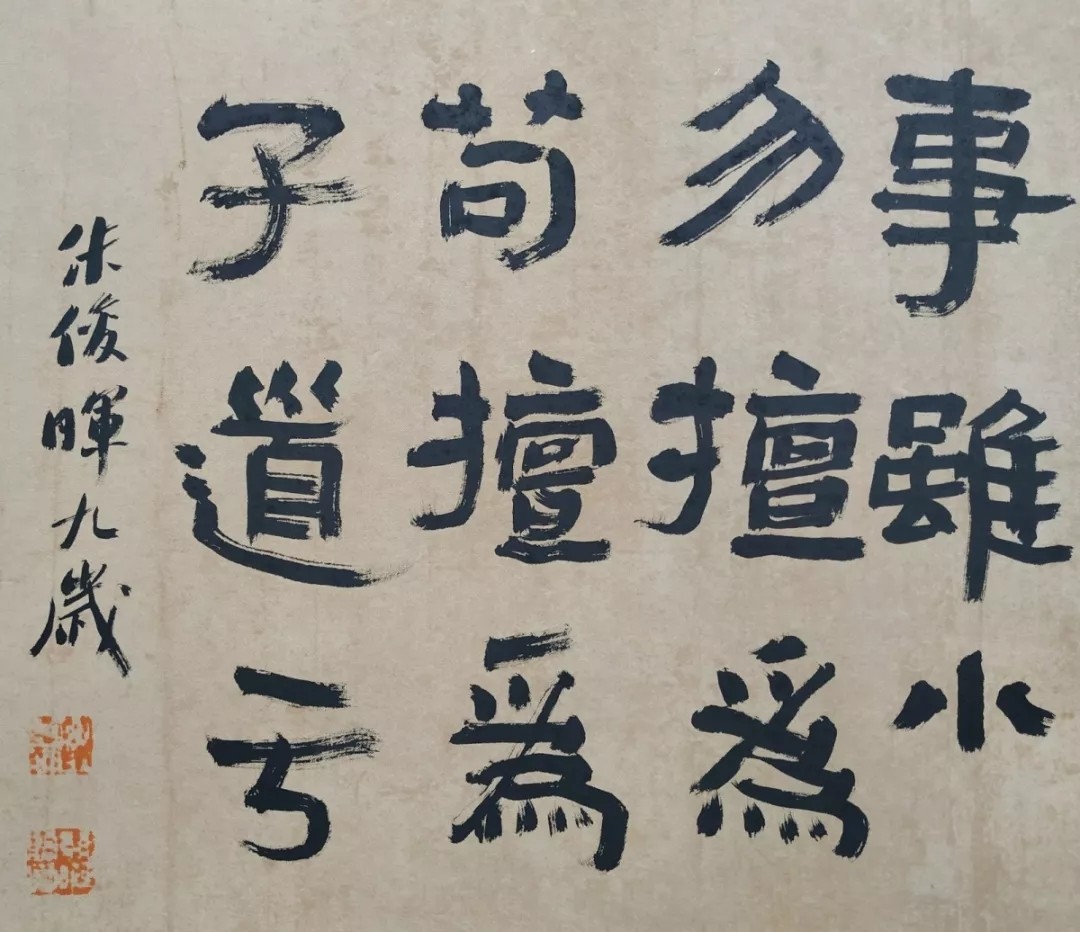 事雖小
勿擅爲
苟擅爲
子道亏
朱俊暉九歲